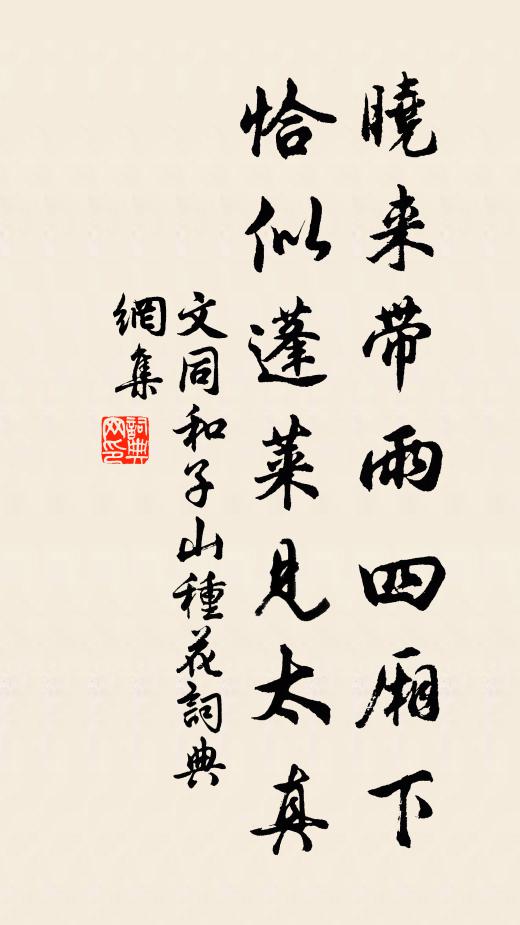 曉来帶雨四厢下
恰似蓬萊見太真
文同和子山種花詞典
網集
詞典
网印